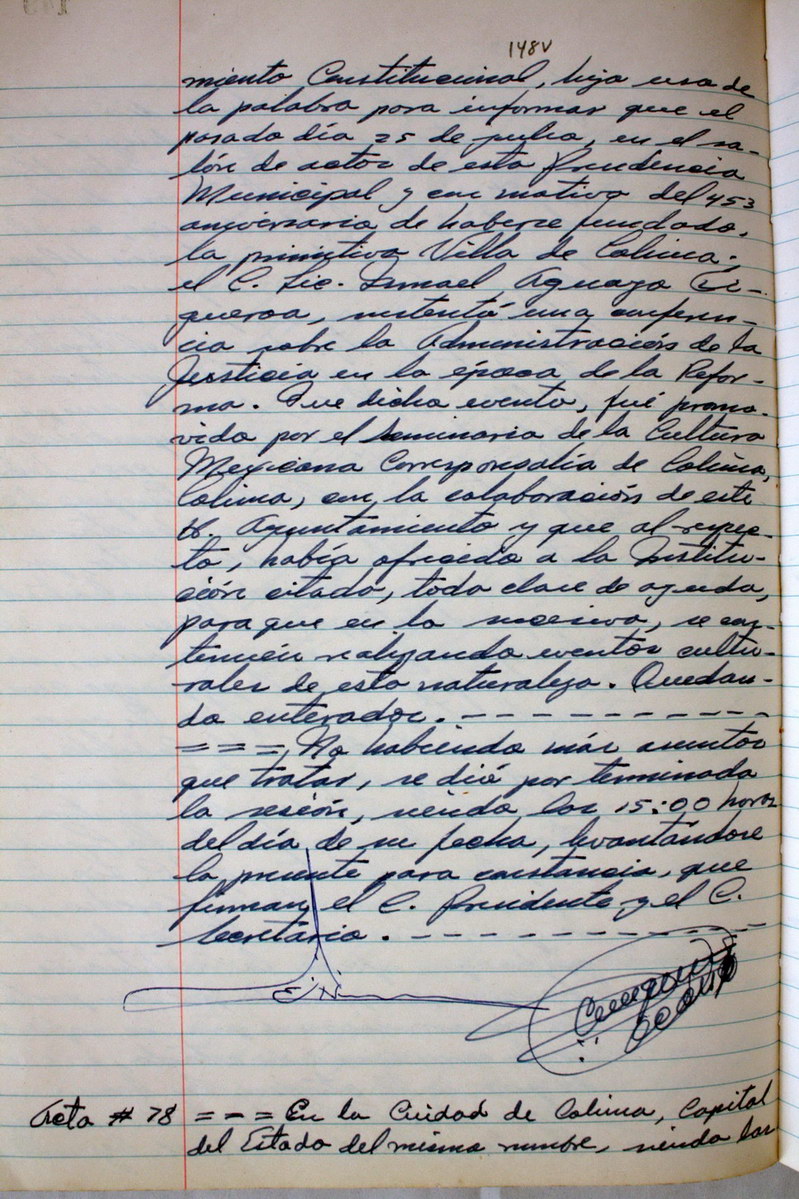 148v
miento Constitucional, hizo uso de
la palabra para informar que el
pasado día 25 de julio, en el sa-
lón de actos de esta Presidencia
Municipal y con motivo del 453
aniversario de haberse fundado,
la primitiva Villa de Colima;
el C. Lic. Ismael Aguayo Fi-
gueroa, sustentó una conferen-
cia sobre la Administración de la
Justicia en la época de la Refor-
ma. Que dicho evento, fué promo-
vido por el Seminario de la Cultura
Mexicana Corresponsalía de Colima,
Colima, con la colaboración de este
H. Ayuntamiento y que al respec-
to, había ofrecido a la Institu-
ción citada, toda clase de ayuda,
para que en lo sucesivo, se con-
tinuén realizando eventos cultu-
rales de esta naturaleza. Quedan-
do enterados. - - - - - - - - - - -
= = = No habiendo más asuntos
que tratar, se dió por terminada
la sesión, siendo las 15:00 horas
del día de su fecha, levantándose
la presente para constancia, que
firman, el C. Presidente y el C.
Secretario. - - - - - - - - - - - -
Acta # 78 = - = En la Ciudad de Colima, Capital
del Estado del mismo nombre, siendo las